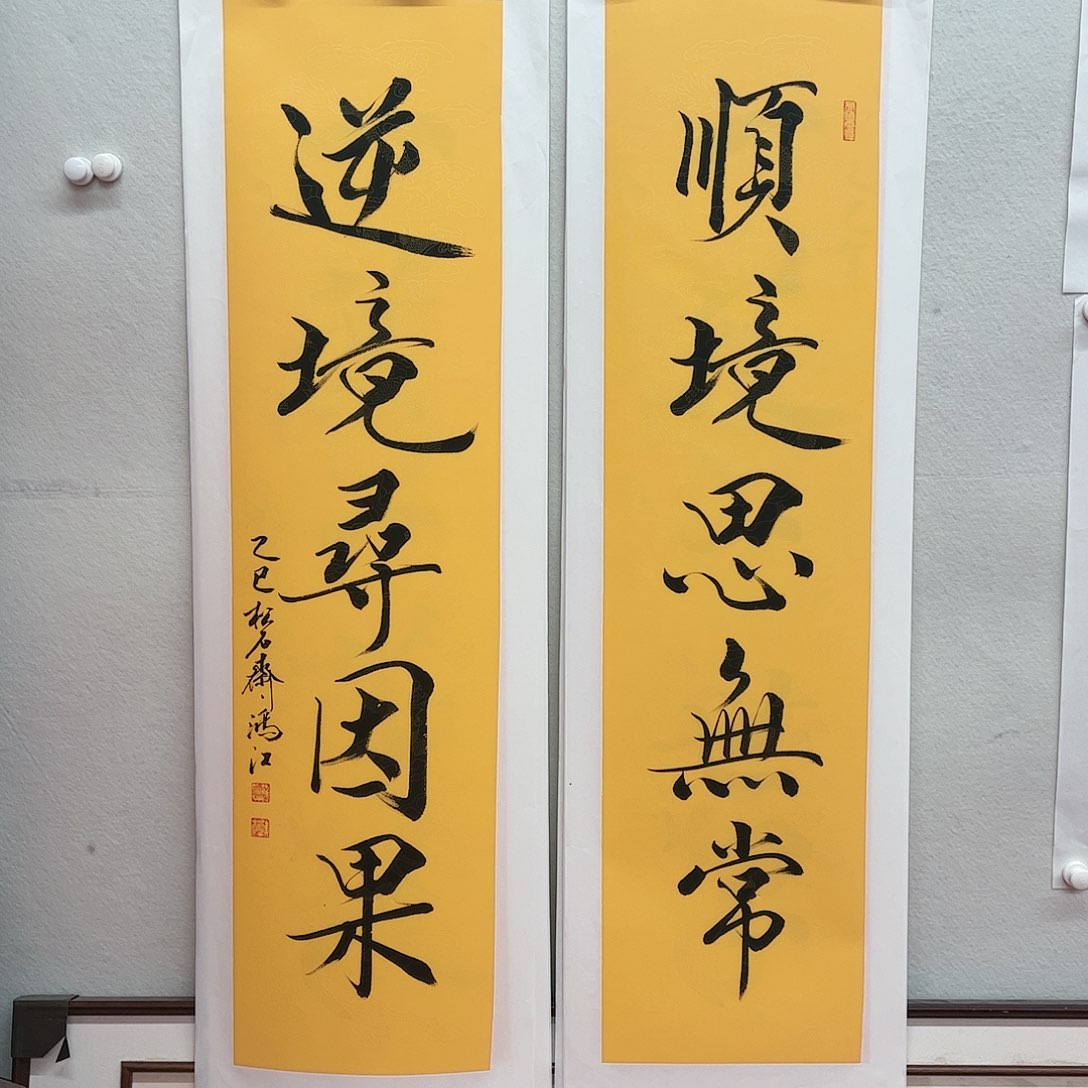 順境思無常
逆境尋因果
乙巳松石齋鴻江